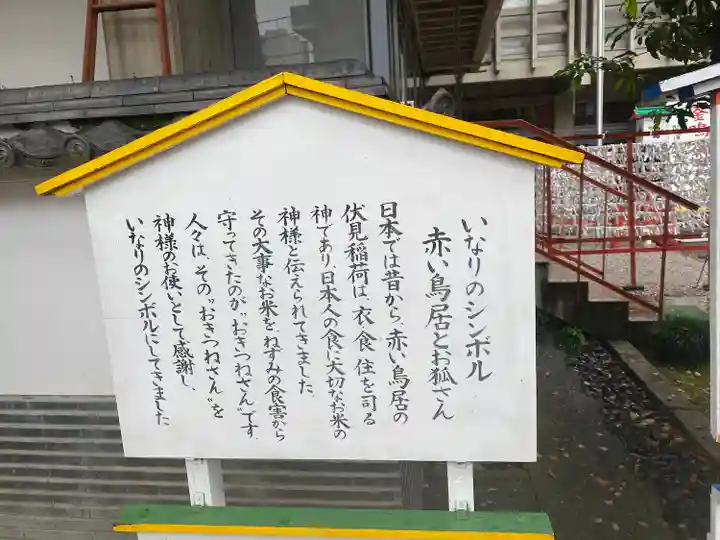 いなりのシンボル
赤い鳥居とお狐さん
日本では昔から、赤い鳥居の
伏見稲荷は、衣、食、住を司る
神であり、日本人の食に大切なお米の
神様と伝えられてきました。
その大事なお米を、ねずみの食害から
守ってきたのが“おきつねさん”です。
人々は、その“おきつねさん”を
神様のお使いとして感謝し、
いなりのシンボルにしてきました。